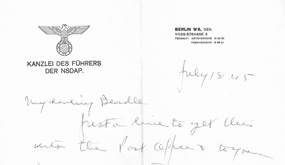 KANZLEI DES FÜHRERS
DER NSDAP.
BERLIN W8, DEN
VOSS-STRASSE 4
July 18. 45
My darling
Just a line to get this
into the Post Office & to you